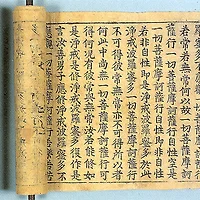 若常若無常何以故一切菩薩摩訶
薩行一切菩薩摩訶薩行自性空是
一切菩薩摩訶薩行自性即非自性
若非自性即是淨戒波羅蜜多於此
淨戒波羅蜜多一切菩薩摩訶薩行
不可得彼常無常亦不可得所以者
何此中尚無一切菩薩摩訶薩行可
得何況有彼常與無常汝若能修如
是淨戒是修淨戒波羅蜜多復作是
言汝善男子應修淨戒波羅蜜多不
應觀一切菩薩摩訶薩行若樂若苦